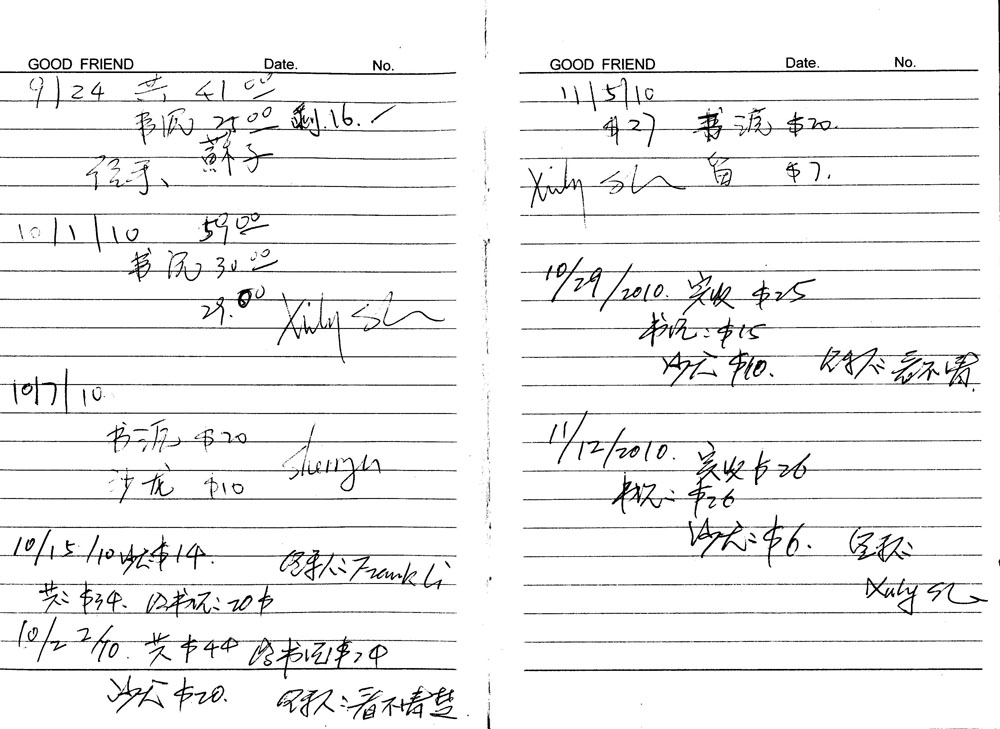 GOOD FRIEND Date. No.
9/24 共 41 00
书院 25 00 剩.16.
经手、 蘇子
10/1/10 59 00
书院 30 00
29.00
10/7/10
书院 $20
沙龙 $10
10/15/10 沙龙:$14.
经手人:Frank Li
共:$34. 给书院:20$
10/22/10. 共$44 给书院$24
沙龙$20. 经手人:看不清楚
GOOD FRIEND Date. No.
11/5/10
$27 书院 $20.
留 $7.
10/29/2010. 实收 $25
书院:$15
沙龙$10. 经手人:看不清
11/12/2010. 实收$26
书院:$26
沙龙:$6. 经手人: